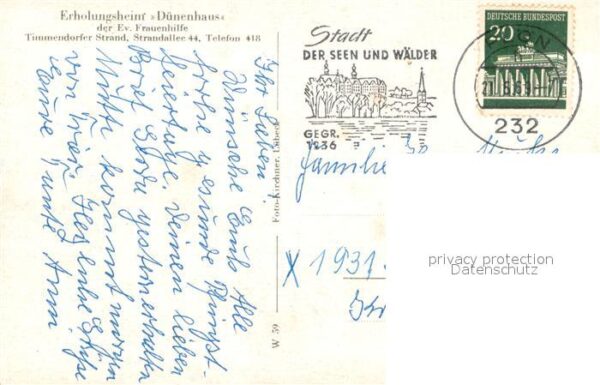 Erholungsheim »Dünenhaus«
der Ev. Frauenhilfe
Timmendorfer Strand, Strandallee 44, Telefon 418
Ihr Lieben!
Wünsche Euch Alle
frohe gesunde Pfingst-
feiertage. Deinen lieben
Brief Gestern erhalten
Mutti kommt morgen
von Herzl.
Eure Tante Anni
Foto-Kirchner, Lübeck
W 59
Stadt
DER SEEN UND WÄLDER
GEGR.
1236
20
DEUTSCHE BUNDESPOST
232
Familie
X 1931
privacy protection
Datenschutz